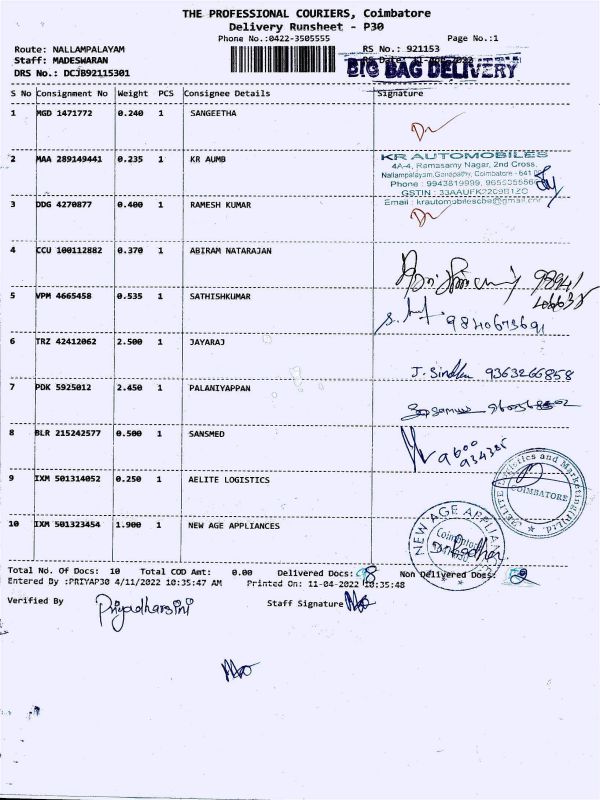 THE PROFESSIONAL COURIERS, Coimbatore
Delivery Runsheet - P30
Phone No.:0422-3505555 Page No.:1
Route: NALLAMPALAYAM RS No.: 921153
Staff: MADESWARAN
BIG BAG DELIVERY
DRS No.: DCJB92115301
S No Consignment No Weight PCS Consignee Details Signature
1 MGD 1471772 0.240 1 SANGEETHA
2 MAA 289149441 0.235 1 KR AUMB
KR AUTOMOBILES
4A-4, Ramasamy Nagar, 2nd Cross,
Nallampalayam, Ganapathy, Coimbatore - 641
Phone : 9943819999,
GSTIN : 33AAUFK2209B1ZO
Email : krautomobilescbe@gmail.com
3 DDG 4270877 0.400 1 RAMESH KUMAR
4 CCU 100112882 0.370 1 ABIRAM NATARAJAN
5 VPM 4665458 0.535 1 SATHISHKUMAR
9840673691
6 TRZ 42412062 2.500 1 JAYARAJ
J. Sindhu 9363266858
7 PDK 5925012 2.450 1 PALANIYAPPAN
8 BLR 215242577 0.500 1 SANSMED
9 IXM 501314052 0.250 1 AELITE LOGISTICS
AELITE Logistics and Marketing (P) Ltd.
COIMBATORE
10 IXM 501323454 1.900 1 NEW AGE APPLIANCES
NEW AGE APPLIAN
Coimbatore
Total No. Of Docs: 10 Total COD Amt: 0.00 Delivered Docs: 8 Non Delivered Docs: 2
Entered By :PRIYAP30 4/11/2022 10:35:47 AM Printed On: 11-04-2022 10:35:48
Verified By Priyadharsini Staff Signature